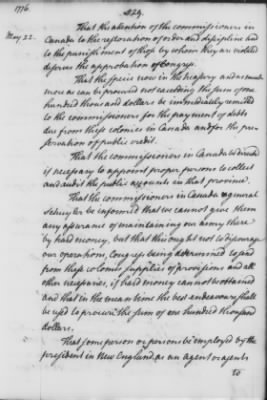 1776.
224.
May 22.
That the attention of the commissioners in
Canada to the restoration of order and discipline and
to the punishment of those by whom they are violated
deserves the approbation of Congress.
That the specie now in the treasury and as much
more as can be procured not exceeding the sum of one
hundred thousand dollars be immediately remitted
to the commissioners for the payment of debts
due from these colonies in Canada and for the pre-
servation of public credit.
That the commissioners in Canada be directed
if necessary to appoint proper persons to collect
and audit the public accounts in that province.
That the commissioners in Canada & general
Schuyler be informed that we cannot give them
any assurance of maintaining our army there
by hard money, but that this ought not to discourage
our operations, Congress being determined to send
from these colonies supplies of provisions and all
other necessaries, if hard money cannot be obtained
and that in the mean time the best endeavours shall
be used to procure the sum of one hundred thousand
dollars.
That some person or persons be employed by the
president in New England as an agent or agents
to